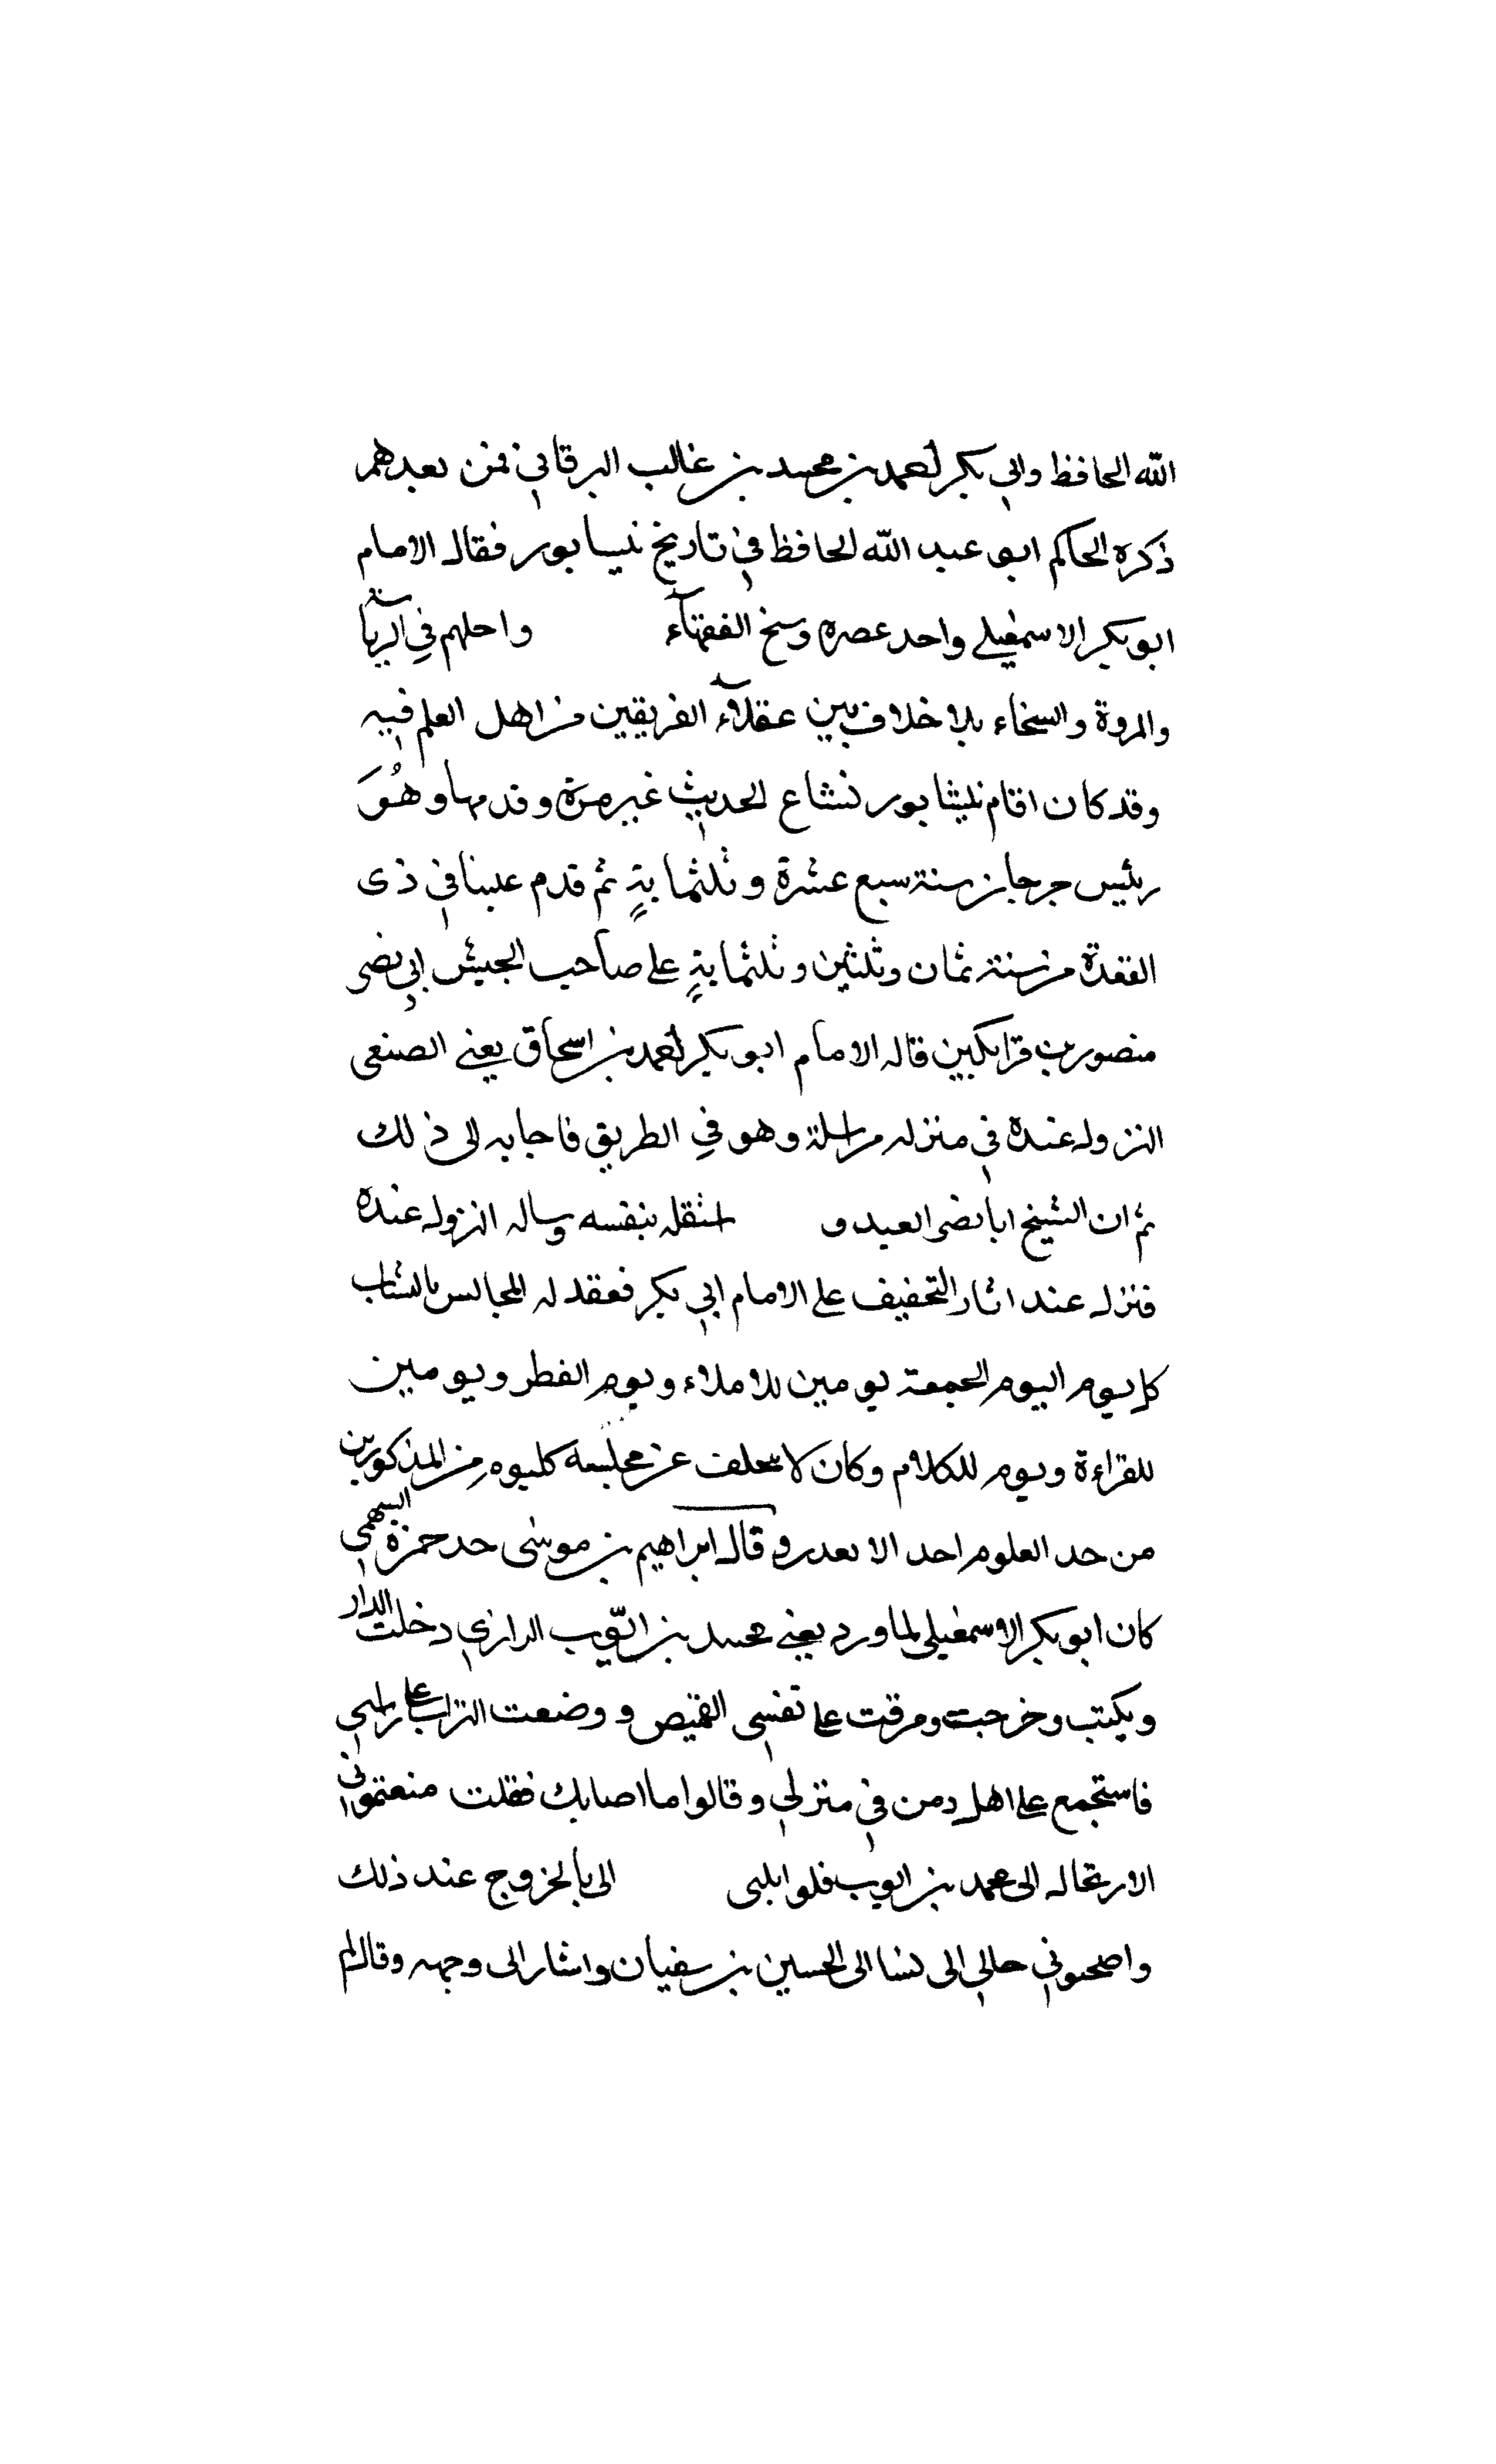 الله الحافظ وابي بكر احمد بن محمد بن غالب البرقاني فمن بعدهم
ذكره الحاكم ابو عبد الله الحافظ في تاريخ نيسابور فقال الامام
ابو بكر الاسمعيلي واحد عصره وشيخ الفقهاء واجلهم في الرياسة
والمروة والسخاء بلا خلاف بين عقلاء الفريقين من اهل العلم فيه
وقد كان اقام نيشابور لسماع الحديث غير مرة وقدمها وهُوَ
رئيس جرجان سنة سبع عشرة وثلثماية ثم قدم علينا في ذى
القعدة من سنة ثمان وثلثين وثلثماية على صاحب الجيش ابي نصر
منصور بن قراتكين قال الامام ابو بكر احمد بن اسحاق يعني الصبغى
النزول عنده في منزله مراسلة وهو في الطريق فاجابه الى ذلك
ثم ان الشيخ ابا نصر العبدوى استقله بنفسه وساله النزول عنده
فنزل عنده اثار التخفيف على الامام ابي بكر فعقد له المجالس بالشباب
كل يوم اليوم الجمعة يومين للاملاء ويوم الفطر ويومين
للقراءة ويوم للكلام وكان لا يتخلف عن مجلسه كل يوم من المذكورين
من حد العلوم احد الا بعذر وقال ابراهيم بن موسى حد حمزة السهمي
كان ابو بكر الاسمعيلي لما ورد يعني محمد بن ايّوب الرازي دخلت الدار
وبكيت وخرجت ومرقت على نفسي القميص ووضعت التراب على راسي
فاستجمع على اهل ومن في منزلي وقالوا ما اصابك فقلت منعتموني
الارتحال الى محمد بن ايوب فلو الى بالخروج عند ذلك
واصحبوني خالي الى نسا الى الحسين بن سفيان واشار الى وجهه وقال لم